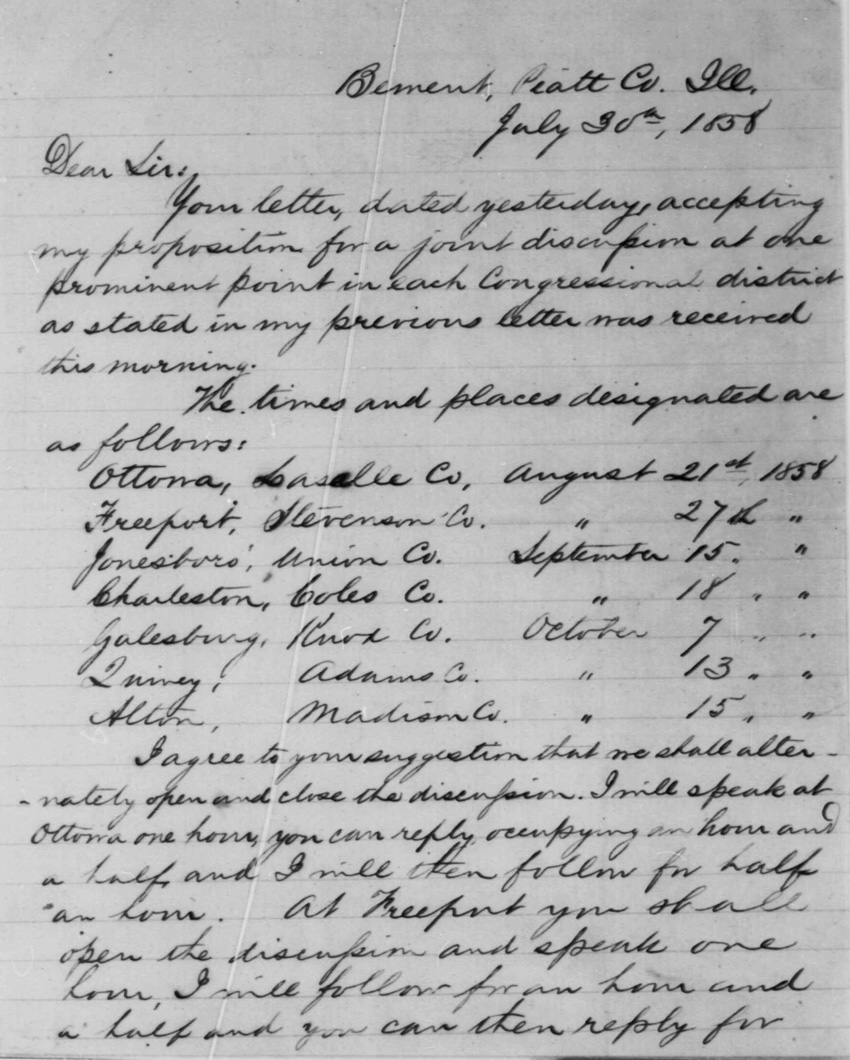 Bement, Piatt Co. Ill.
July 30th, 1858
Dear Sir:
Your letter, dated yesterday, accepting
my proposition for a joint discussion at one
prominent point in each Congressional district
as stated in my previous letter was received
this morning.
The times and places designated are
as follows:
Ottowa, Lasalle Co, August 21st, 1858
Freeport, Stevenson Co. " 27th "
Jonesboro', Union Co. September 15. "
Charleston, Coles Co. " 18 " "
Galesburg, Knox Co. October 7 " "
Quincy, Adams Co. " 13 " "
Alton, Madison Co. " 15 " "
I agree to your suggestion that we shall alter-
-nately open and close the discussion. I will speak at
Ottowa one hour, you can reply, occupying an hour and
a half, and I will then follow for half
an hour. At Freeport you shall
open the discussion and speak one
hour, I will follow for an hour and
a half and you can then reply for